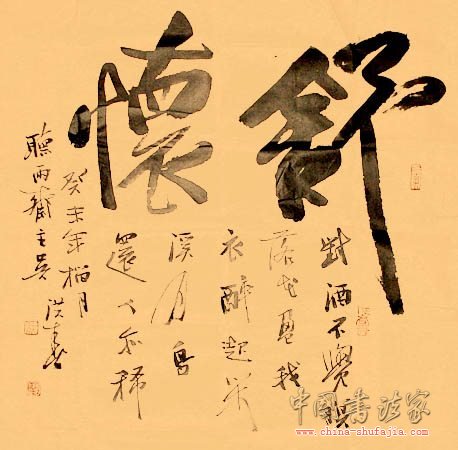 舒懷
對酒不覺暝
落花盈我
衣醉起步
溪月鳥
還人亦稀
癸未年榴月
聽雨齋主吳洪
中国书法家
www.china-shufajia.com